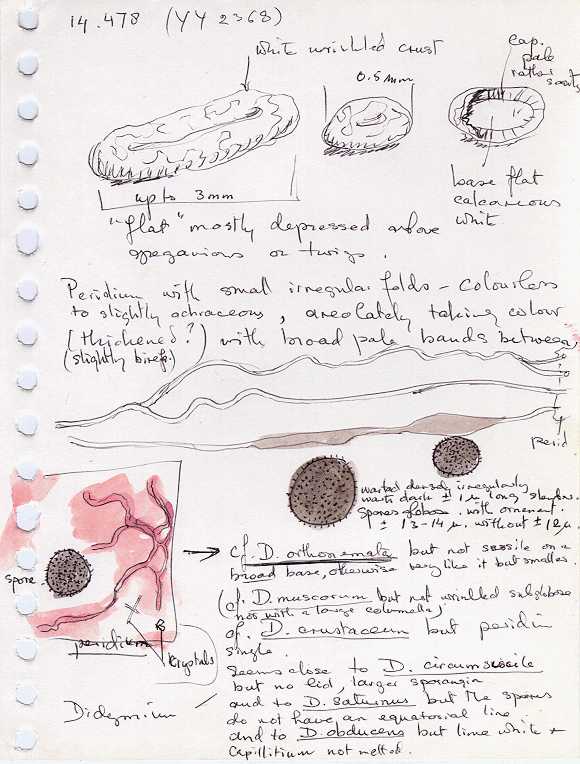 14.478 (YY 2368)
white wrinkled crust
cap.
pale
rather
0.5mm
up to 3mm
base flat
calcareous
white
"flat" mostly depressed above
or twigs.
Peridium with small irregular folds - colourless
to slightly ochraceous, areolately taking colour
(thickened?) with broad pale bands between,
(slightly biref.)
perid
warted densely irregularly
warts dark ± 1 µ long slender.
spores globose. with ornament.
± 13-14 µ. without ± 12 µ.
spore
peridium
krystals
→ cf. D. orthonemata but not sessile on a
broad base, otherwise very like it but smaller.
(cf. D. muscorum but not wrinkled subglobose
nor with a large columella)
cf. D. crustaceum but peridium
single.
seems close to D. circumscissile
but no lid, larger sporangia
and to D. saturnus but the spores
do not have an equatorial line
and to D. obducens but lime white +
capillitium not netted.
Didymium